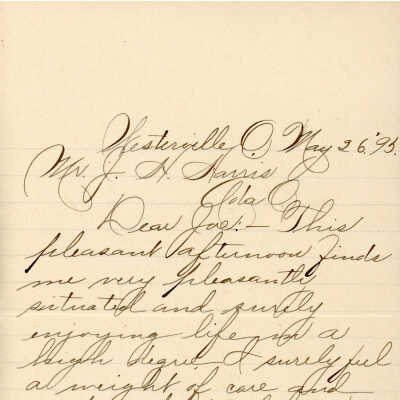 Westerville O. May 26. '95.
Mr. J. H. Harris
Ada O.
Dear Joe:- This
pleasant afternoon finds
me very pleasantly
situated and surely
enjoying life in a
high degree. I surely feel
a weight of care and